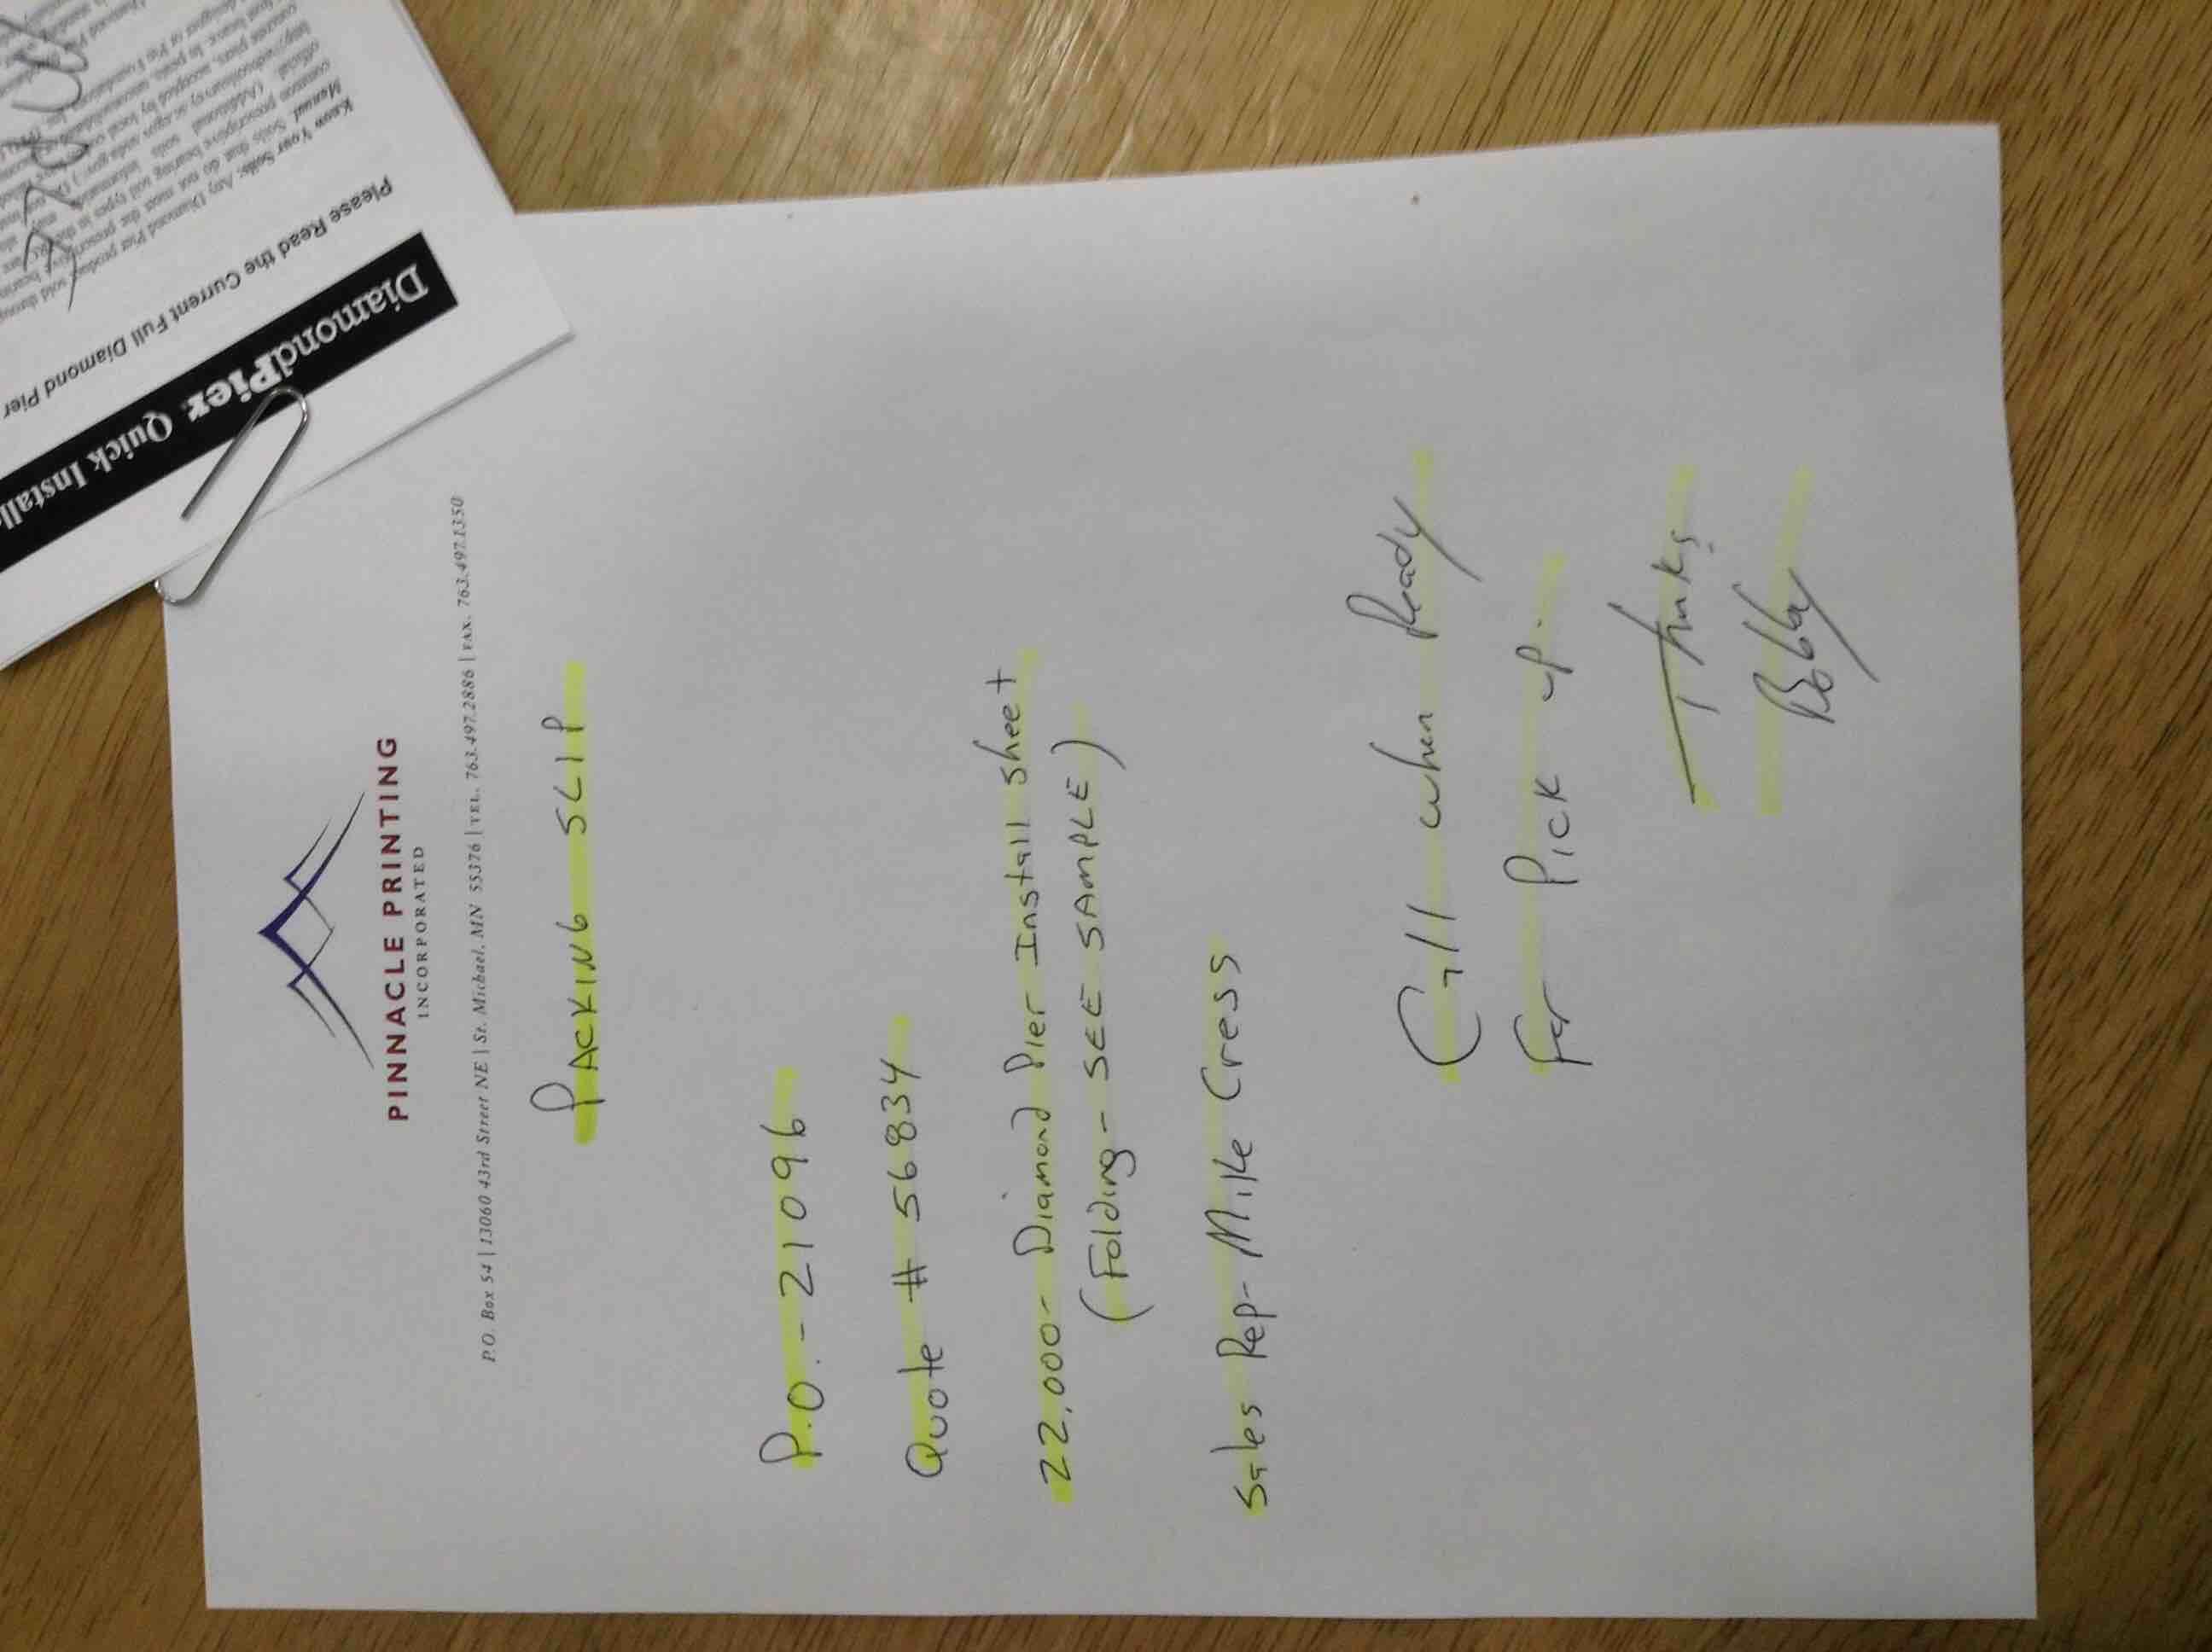 PINNACLE PRINTING
INCORPORATED
P.O. Box 54 | 13060 43rd Street NE | St. Michael, MN 55376 | TEL. 763.497.2886 | FAX. 763.497.1350
PACKING SLIP
P.O. - 21096
Quote # 56834
22,000 - Diamond Pier Install sheet
(Folding - SEE SAMPLE)
Sales Rep - Mike Cress
Call when Ready
For Pick up.
Thanks
Bobby
DiamondPier Quick Install
Please Read the Current Full Diamond Pier
Know Your Soils: Any Diamond Pier
Manual. Soils that do not meet the